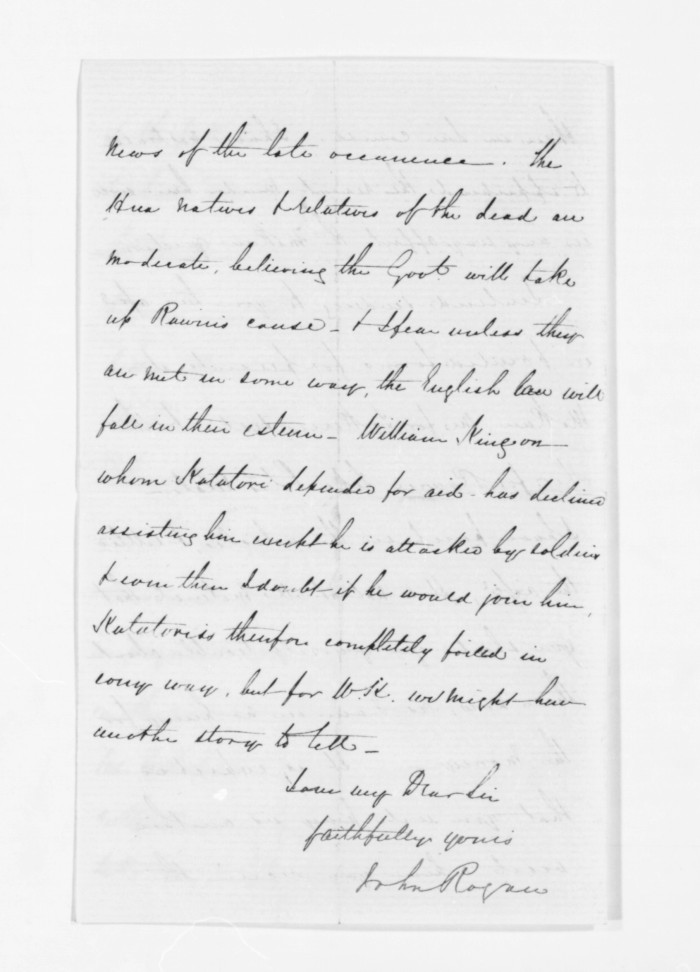 news of the late occurrence. The
Hua natives & relatives of the dead are
moderate, believing the Govt. will take
up Rawiris cause – & I fear unless they
are met in some way, the English law will
fall in their esteem – William King on
whom Katatori depended for aid – has declined
assisting him except he is attacked by soldiers
& even then I doubt if he would join him,
Katatori is therefore completely foiled in
every way, but for W.K. we might have
another story to tell –
I am my Dear Sir
faithfully yours
John Rogan